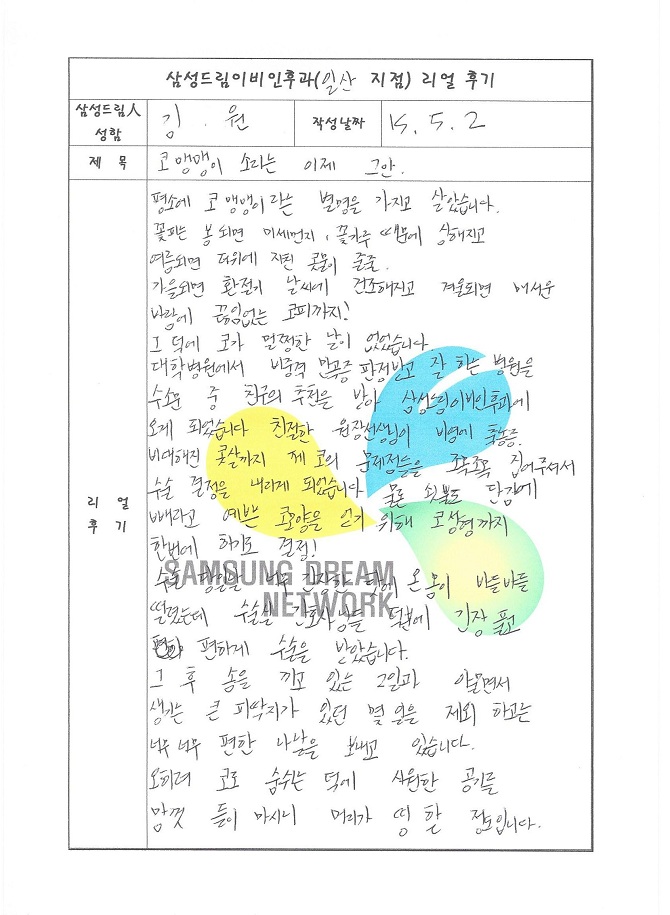 삼성드림이비인후과(일산 지점) 리얼 후기
삼성드림人 성함 김 . 원 작성날짜 15. 5. 2
제 목 코맹맹이 소리는 이제 그만.
리얼 후기
평소에 코맹맹이라는 별명을 가지고 살았습니다.
꽃피는 봄되면 미세먼지, 꽃가루 때문에 상해지고
여름되면 더위에 지친 콧물이 줄줄.
가을되면 환절기 날씨에 건조해지고 겨울되면 매서운
바람에 끊임없는 코피까지!
그 덕에 코가 멀쩡한 날이 없었습니다.
대학병원에서 비중격 만곡증 판정받고 잘 하는 병원을
수소문 중 친구의 추천을 받아 삼성드림이비인후과에
오게 되었습니다 친절한 원장선생님이 비염에 축농증.
비대해진 콧살까지 제 코의 문제점들을 조목조목 집어주셔서
수술 결정을 내리게 되었습니다 물론 쇳불도 단김에
빼라고 예쁜 코모양을 얻기 위해 코성형까지
한번에 하기로 결정!
수술 당일날 너무 긴장한 탓에 온몸이 바들바들
떨렸는데 수술실 간호사님들 덕분에 긴장 풀고
편하게 수술을 받았습니다.
그 후 솜을 끼고 있는 2일과 아물면서
생기는 큰 피딱지가 있던 몇 일을 제외 하고는
너무 너무 편한 나날을 보내고 있습니다.
오히려 코로 숨쉬는 덕에 시원한 공기를
맘껏 들이 마시니 머리가 띵 할 정도입니다.
SAMSUNG DREAM
NETWORK